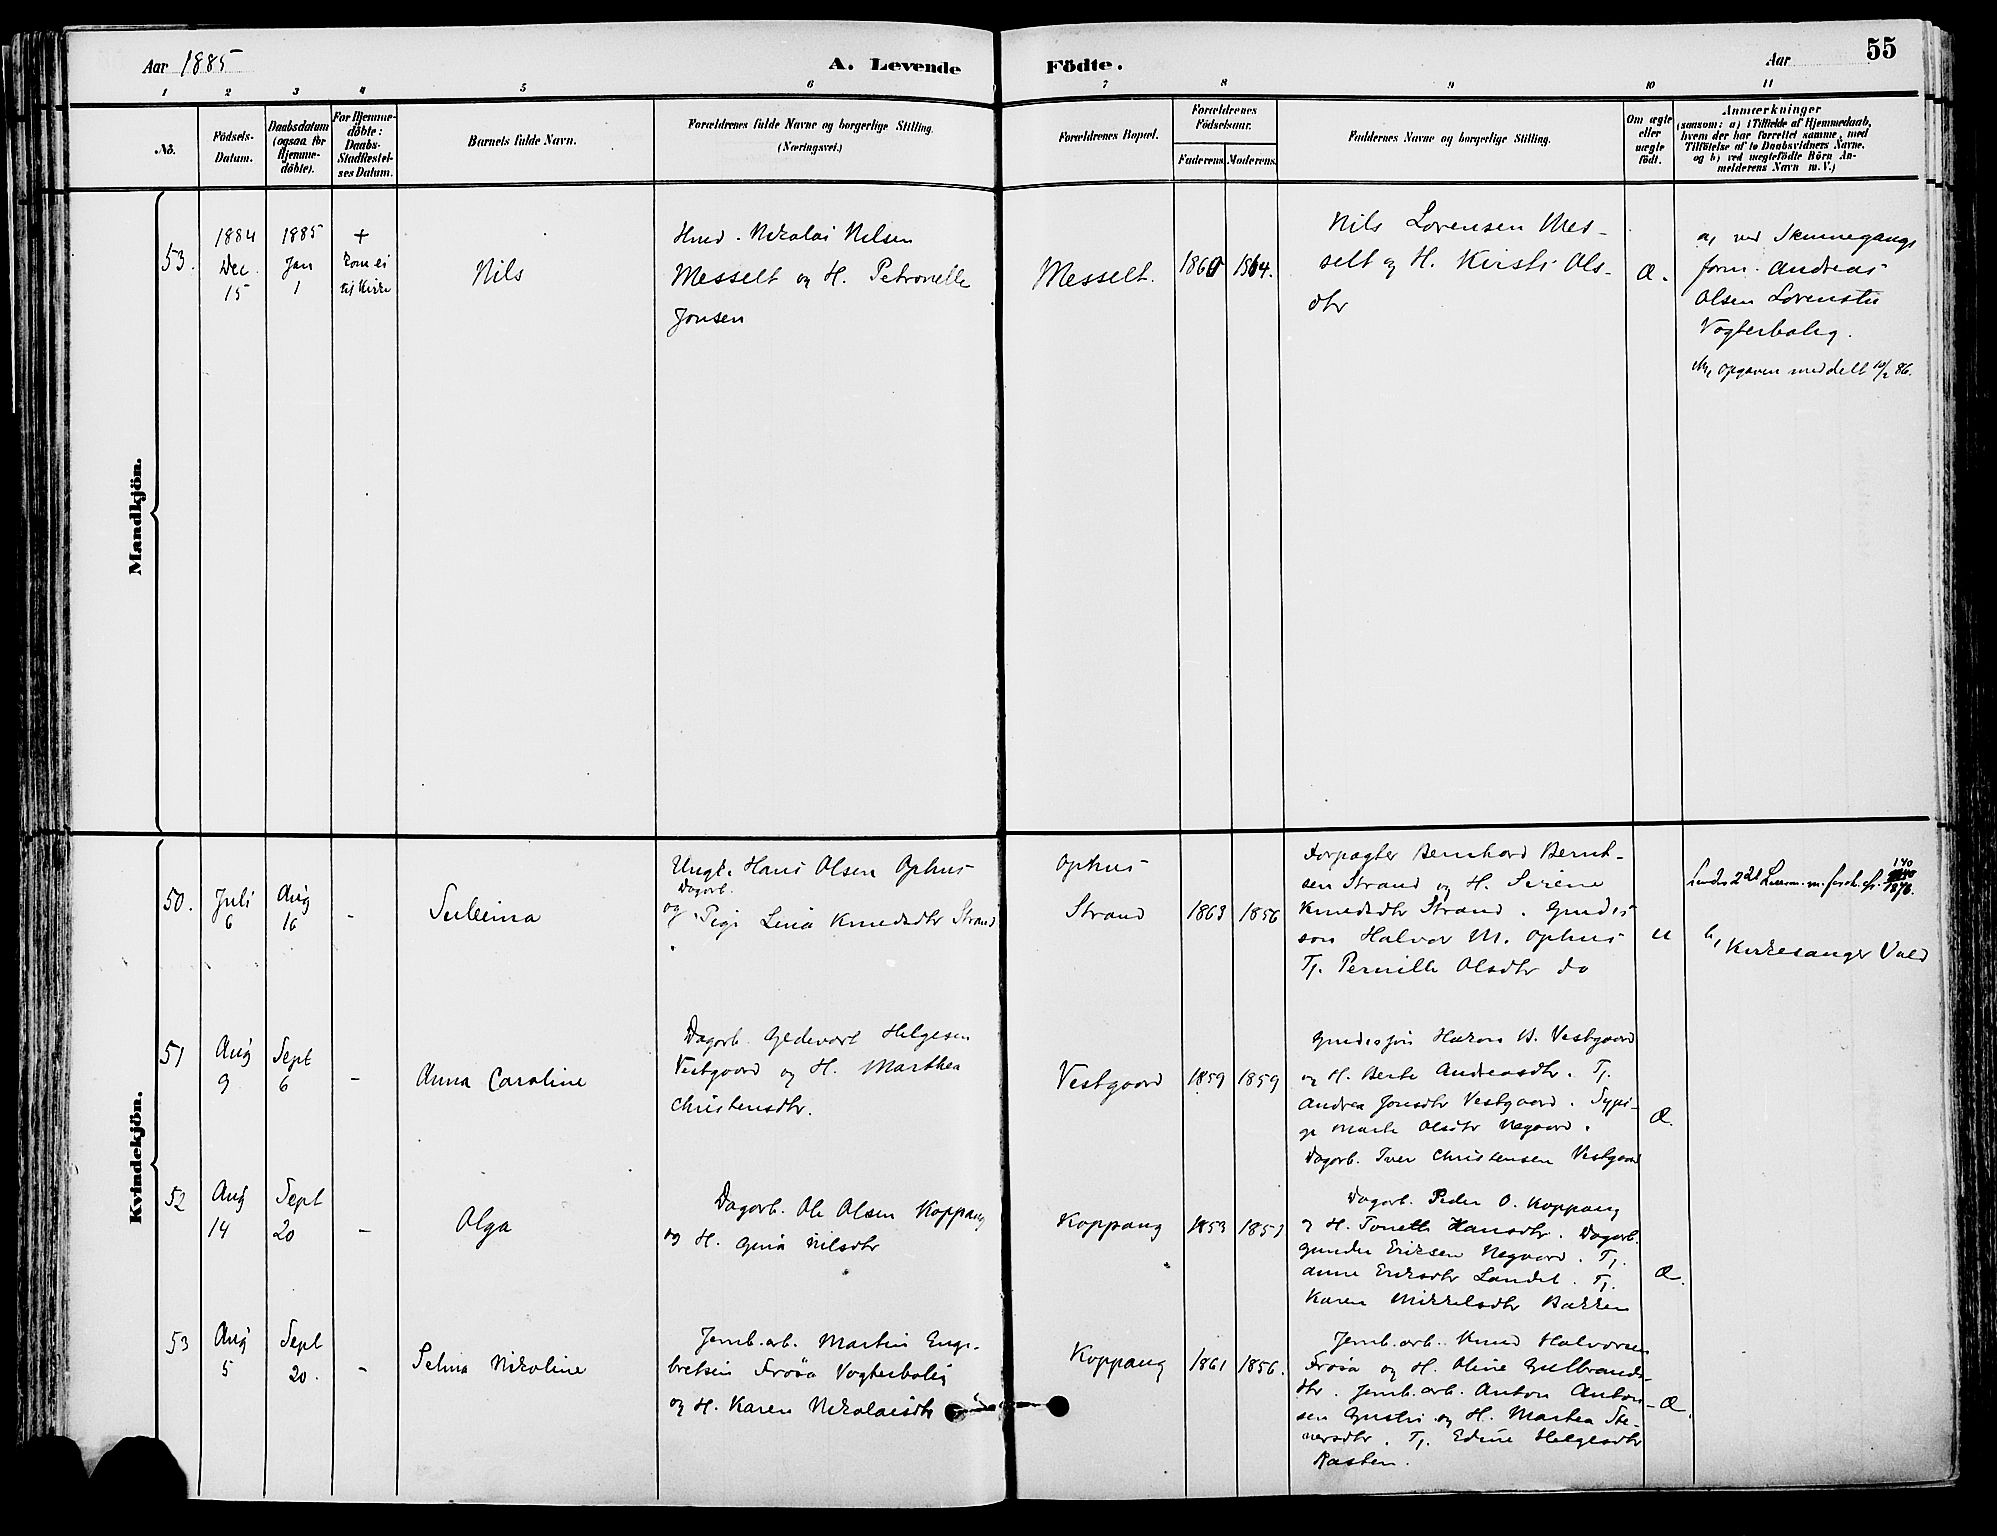 Aar 1885
A. Levende
Födte.
Aar
55
1 2 3 4 5 6 7 8 9 10 11
No.
Födsels-
Datum.
Daabsdatum
(ogsaa for
Hjemme-
döbte).
For Hjemme-
döbte:
Daabs-
Stadfæstel-
ses Datum.
Barnets fulde Navn.
Forældrenes fulde Navne og borgerlige Stilling.
(Næringsvei.)
Forældrenes Bopæl.
Forældrenes
Födselsaar.
Faderens. Moderens.
Faddernes Navne og borgerlige Stilling.
Om ægte
eller
uægte
födt.
Anmærkninger
(saasom: a) i Tilfælde af Hjemmedaab,
hvem der har forrettet samme, med
Tilföielse af to Daabsvidners Navne,
og b) ved uægtefödte Börn An-
melderens Navn m. V.)
Mandkjön.
53.
1884
Dec.
15
1885
Jan
1
+
kom ei
til Kirke
Nils
Hmd. Nikolai Nilsen
Messelt og H. Petronelle
Jonsen
Messelt.
1860
1864.
Nils Lorensen Mes-
selt og H. Kirsti Ols-
dtr
Æ.
a, ved Skinnegangs
form. Andreas
Olsen
Vogterbolig.
Opgaven meddelt 10/2 86.
Kvindekjön.
50.
Juli
6
Aug
16
-
Ungk. Hans Olsen Ophus
Dagarb.
og Pige Lina Knudsdtr Strand
Ophus
Strand
1863
1856
Forpagter Bernhard Bernt-
sen Strand og H. Serine
Knudsdtr Strand. Gmdes-
søn Halvor M. Ophus
Tj. Pernille Olsdtr do
u
b, Kirkesanger Vold
51
Aug
9
Sept
6
-
Anna Caroline
Dagarb. Gedevart Helgesen
Vestgaard og H. Marthea
Christensdtr.
Vestgaard
1859
1859
Gmdessøn Haken B. Vestgaard
og H. Berte Andreasdtr. Tj.
Andrea Jonsdtr Vestgaard. Sypi-
ge Marte Olsdtr Negaard.
Dagarb. Iver Christensen Vestgaard
Æ.
52
Aug
14
Sept
20
-
Olga
Dagarb. Ole Olsen Koppang
og H. Gina Nilsdtr
Koppang
1853
1857
Dagarb. Peder O. Koppang
og H. Tonette Hansdtr. Dagarb.
Gunder Eriksen Negaard. Tj.
Anne Eriksdtr Landet. Tj.
Karen Mikkelsdtr Bakken
Æ.
53
Aug
5
Sept
20.
-
Selma Nikoline
Jernb.arb. Martin Enge-
bretsen Frøsa Vogterbolig
og H. Karen Nikolaisdtr
Koppang
1861
1856.
Jernb.arb. Knud Halvorsen
Frøsa og H. Oline Gulbrands-
dtr. Jernb.arb. Anton Anton-
sen og H. Martea Ste-
nersdtr. Tj. Edine Helgesdtr
Rasten.
Æ.